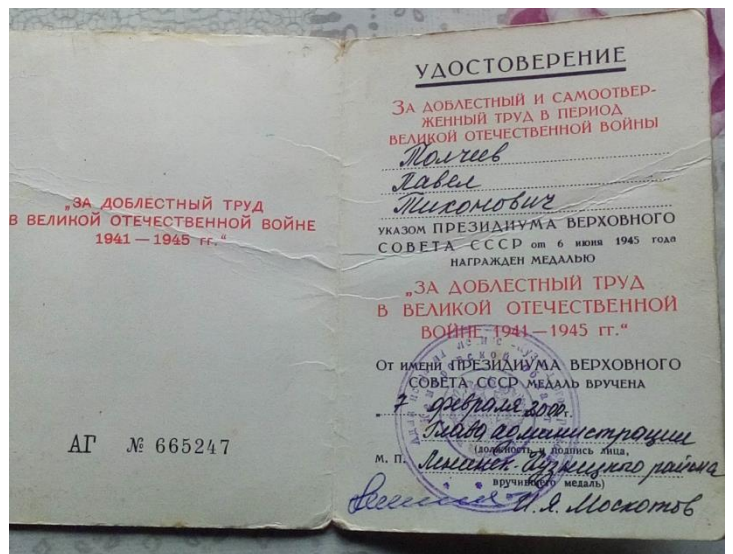 „ЗА ДОБЛЕСТНЫЙ ТРУД
В ВЕЛИКОЙ ОТЕЧЕСТВЕННОЙ ВОЙНЕ
1941 — 1945 гг.“
АГ № 665247
УДОСТОВЕРЕНИЕ
ЗА ДОБЛЕСТНЫЙ И САМООТВЕР-
ЖЕННЫЙ ТРУД В ПЕРИОД
ВЕЛИКОЙ ОТЕЧЕСТВЕННОЙ ВОЙНЫ
Толчеев
Павел
Тихонович
УКАЗОМ ПРЕЗИДИУМА ВЕРХОВНОГО
СОВЕТА СССР от 6 июня 1945 года
НАГРАЖДЕН МЕДАЛЬЮ
„ЗА ДОБЛЕСТНЫЙ ТРУД
В ВЕЛИКОЙ ОТЕЧЕСТВЕННОЙ
ВОЙНЕ 1941 — 1945 гг.“
От имени ПРЕЗИДИУМА ВЕРХОВНОГО
СОВЕТА СССР МЕДАЛЬ ВРУЧЕНА
„7 февраля 2000г.
Глава администрации
(должность и подпись лица,
М. П. Ленинск-Кузнецкого района
вручившего медаль)
И. Я. Москотов